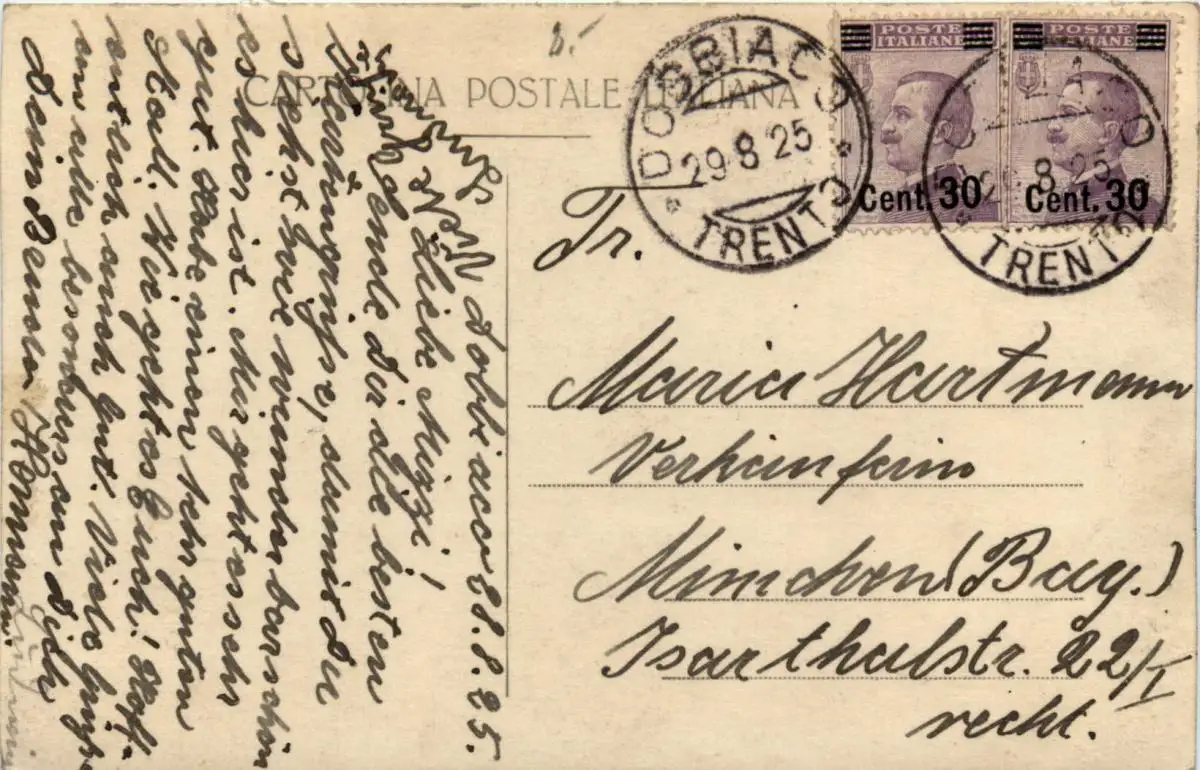 CARTOLINA POSTALE ITALIANA
DOBBIACO
29 8 25
TRENTO
POSTE ITALIANE
Cent. 30
POSTE ITALIANE
Cent. 30
DOBBIACO
29 8 25
TRENTO
Dobbiaco 28.8.25.
Liebe Mizzi!
Sende Dir die besten
Kartengrüße, damit Du
siehst wie wunderbar schön
es hier ist. Mir geht es sehr
gut. Habe einen sehr guten
Stall. Wie geht es Euch! Hoff-
entlich auch gut. Viele Grüße
an alle besonders an Dich
Dein
Hermann.
Fr.
Maria Hartmann
Verkäuferin
München (Bay.)
Isarthalstr. 22/I
recht.